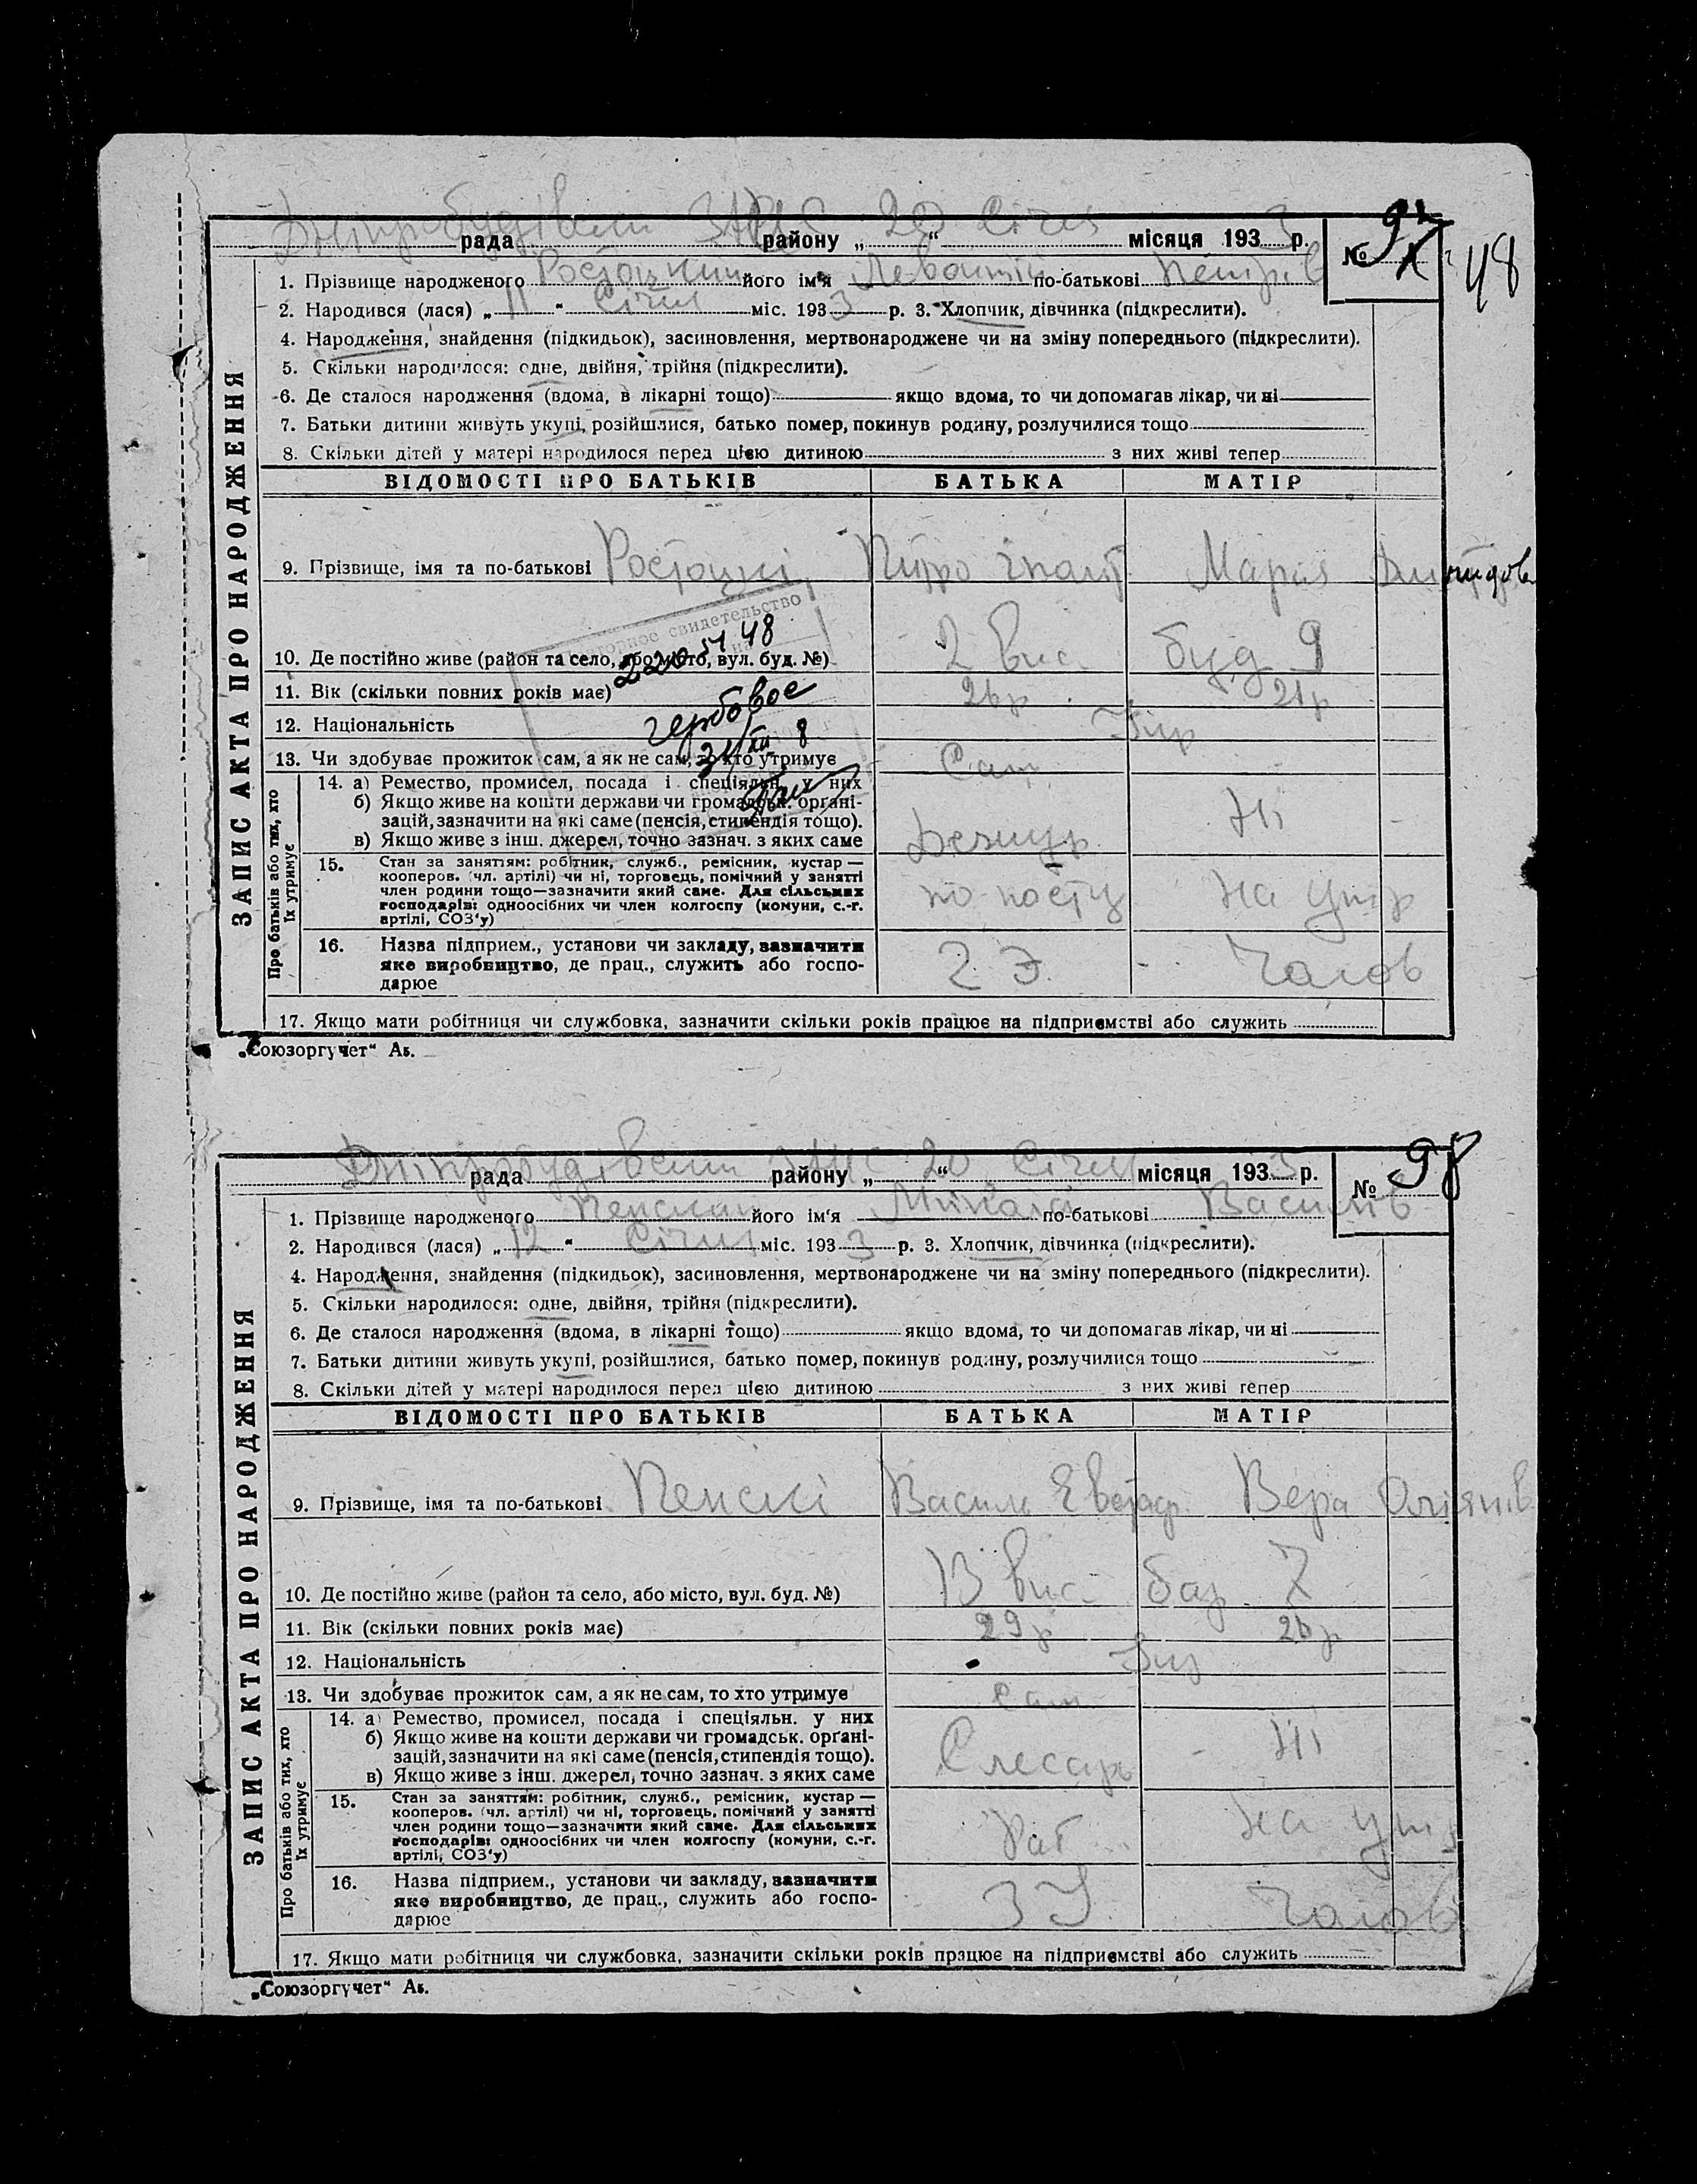 Дніпробудівськ ЗАГС 20 Січня 3
рада району „ “ місяця 193 р.
№ 97
48
1. Прізвище народженого Ростоцкий його ім'я Левонтій по-батькові Петрів
2. Народився (лася) „ 11 “ Січня міс. 193 3 р. 3. Хлопчик, дівчинка (підкреслити).
4. Народження, знайдення (підкидьок), засиновлення, мертвонароджене чи на зміну попереднього (підкреслити).
5. Скільки народилося: одне, двійня, трійня (підкреслити).
6. Де сталося народження (вдома, в лікарні тощо) якщо вдома, то чи допомагав лікар, чи ні
7. Батьки дитини живуть укупі, розійшлися, батько помер, покинув родину, розлучилися тощо
8. Скільки дітей у матері народилося перед цією дитиною з них живі тепер
ЗАПИС АКТА ПРО НАРОДЖЕННЯ
ВІДОМОСТІ ПРО БАТЬКІВ БАТЬКА МАТІР
9. Прізвище, імя та по-батькові Ростоцкі Петро Іпат Мария
свидетельство
10. Де постійно живе (район та село, або місто, вул. буд. №) 2 вис. буд 9
48
11. Вік (скільки повних років має) 26 р 21 р
12. Національність Укр
гербовое
13. Чи здобуває прожиток сам, а як не сам, то хто утримує Сам
31/XII 8
Про батьків або тих, хто їх утримує
14. а) Ремество, промисел, посада і спеціяльн. у них
б) Якщо живе на кошти держави чи громадськ. органі-
зацій, зазначити на які саме (пенсія, стипендія тощо).
в) Якщо живе з інш. джерел, точно зазнач. з яких саме
Дежур Ні
15. Стан за заняттям: робітник, служб., ремісник, кустар —
кооперов. (чл. артілі) чи ні, торговець, помічний у занятті
член родини тощо—зазначити який саме. Для сільських
господарів: одноосібних чи член колгоспу (комуни, с.-г.
артілі, СОЗ'у)
по посту на утр
16. Назва підприєм., установи чи закладу, зазначити
яке виробництво, де прац., служить або госпо-
дарює
2 Э. Чалов
17. Якщо мати робітниця чи службовка, зазначити скільки років працює на підприємстві або служить
„Союзоргучет“ Аб.
Дніпробудівськ ЗАГС 20 Січня 3
рада району „ “ місяця 193 р.
№ 98
1. Прізвище народженого Пенский його ім'я Микола по-батькові Василів
2. Народився (лася) „ 12 “ Січня міс. 193 3 р. 3. Хлопчик, дівчинка (підкреслити).
4. Народження, знайдення (підкидьок), засиновлення, мертвонароджене чи на зміну попереднього (підкреслити).
5. Скільки народилося: одне, двійня, трійня (підкреслити).
6. Де сталося народження (вдома, в лікарні тощо) якщо вдома, то чи допомагав лікар, чи ні
7. Батьки дитини живуть укупі, розійшлися, батько помер, покинув родину, розлучилися тощо
8. Скільки дітей у матері народилося перед цією дитиною з них живі тепер
ЗАПИС АКТА ПРО НАРОДЖЕННЯ
ВІДОМОСТІ ПРО БАТЬКІВ БАТЬКА МАТІР
9. Прізвище, імя та по-батькові Пенскі Василь Евстаф. Вера
10. Де постійно живе (район та село, або місто, вул. буд. №) 13 вис. 7
11. Вік (скільки повних років має) 29 р 26 р
12. Національність
13. Чи здобуває прожиток сам, а як не сам, то хто утримує Сам
Про батьків або тих, хто їх утримує
14. а) Ремество, промисел, посада і спеціяльн. у них
б) Якщо живе на кошти держави чи громадськ. органі-
зацій, зазначити на які саме (пенсія, стипендія тощо).
в) Якщо живе з інш. джерел, точно зазнач. з яких саме
Слесарь Ні
15. Стан за заняттям: робітник, служб., ремісник, кустар —
кооперов. (чл. артілі) чи ні, торговець, помічний у занятті
член родини тощо—зазначити який саме. Для сільських
господарів: одноосібних чи член колгоспу (комуни, с.-г.
артілі, СОЗ'у)
Раб на утр
16. Назва підприєм., установи чи закладу, зазначити
яке виробництво, де прац., служить або госпо-
дарює
Чалов
17. Якщо мати робітниця чи службовка, зазначити скільки років працює на підприємстві або служить
„Союзоргучет“ Аб.